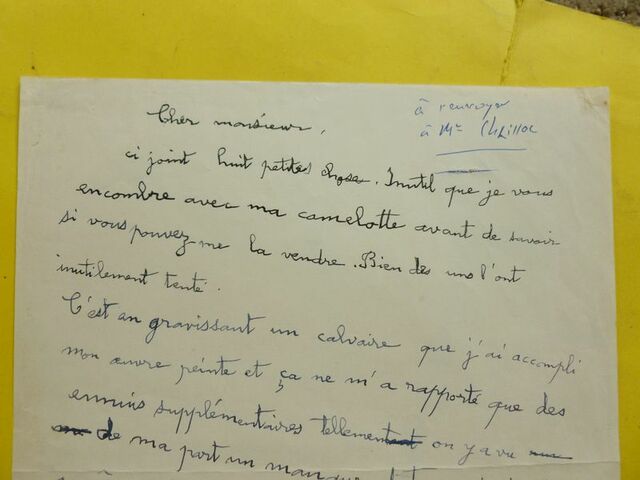 à renvoyer
à Mr Chaissac
Cher monsieur,
ci joint huit petites chose. Inutil que je vous
encombre avec ma camelotte avant de savoir
si vous pouvez me la vendre. Bien des uns l'ont
inutilement tenté.
C'est en gravissant un calvaire que j'ai accompli
mon œuvre peinte et ça ne m'a rapporté que des
ennuis supplémentaires tellement on y a vu
de ma part un manque